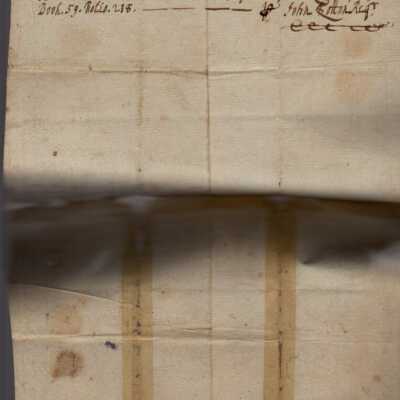 Book. 59. Folio. 218. ⅌ John Cotton Regr